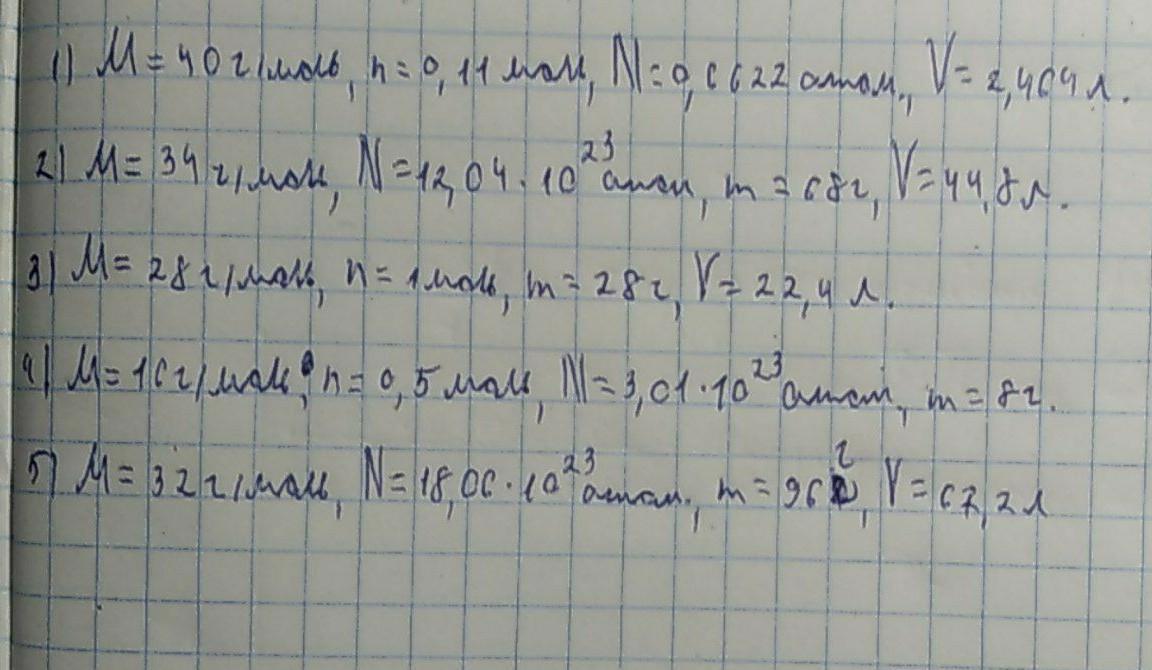 1) M = 40 г/моль, n = 0,11 моль, N = 0,6622 атом., V = 2,464 л.
2) M = 34 г/моль, N = 12,04 · 10²³ атом, m = 68 г, V = 44,8 л.
3) M = 28 г/моль, n = 1 моль, m = 28 г, V = 22,4 л.
4) M = 16 г/моль, n = 0,5 моль, N = 3,01 · 10²³ атом, m = 8 г.
5) M = 32 г/моль, N = 18,06 · 10²³ атом., m = 96 г, V = 67,2 л